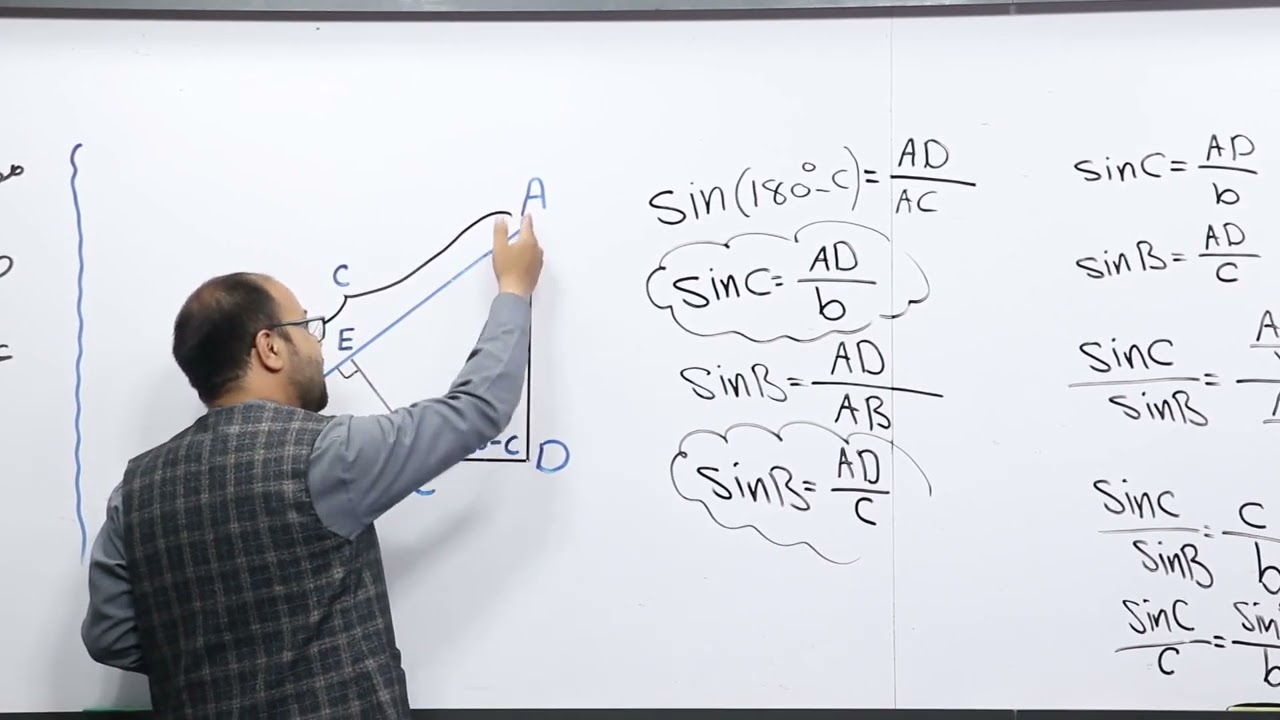 A
C
E
-C
D
C
Sin(180°-C) = AD/AC
SinC = AD/b
SinB = AD/AB
SinB = AD/C
SinC = AD/b
SinB = AD/C
SinC/SinB =
SinC/SinB = C/b
SinC/C = Sin/b